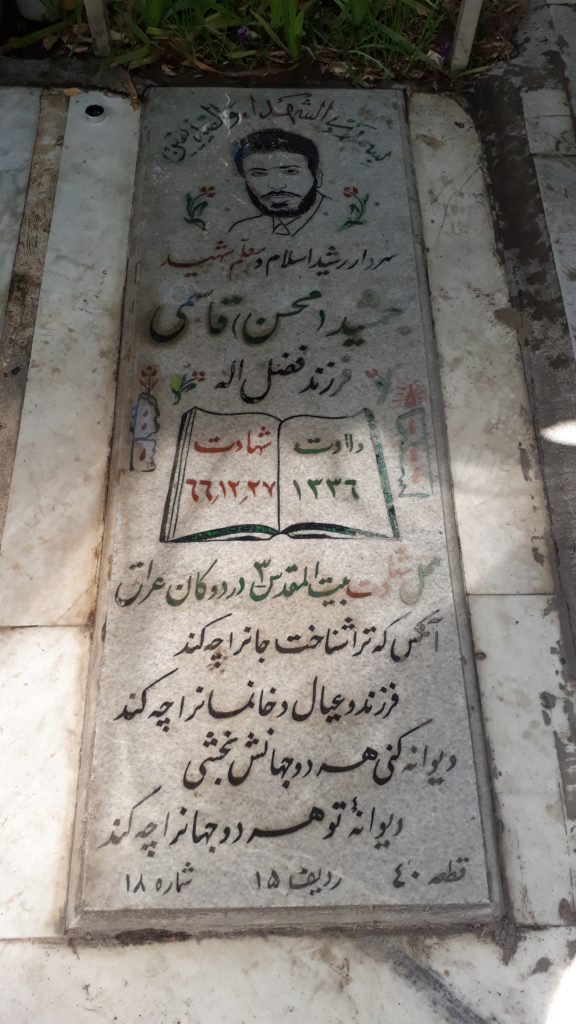 بسم رب الشهداء والصدیقین
سردار رشید اسلام و معلم شهید
جمشید (محسن) قاسمی
فرزند فضل اله
ولادت
۱۳۳۶
شهادت
۶۶٫۱۲٫۲۷
محل شهادت بیت المقدس ۳ در دوکان عراق
آنکس که ترا شناخت جانرا چه کند
فرزند و عیال و خانمانرا چه کند
دیوانه کنی هر دو جهانش بخشی
دیوانهٔ تو هر دو جهانرا چه کند
قطعه ۴۰ ردیف ۱۵ شماره ۱۸